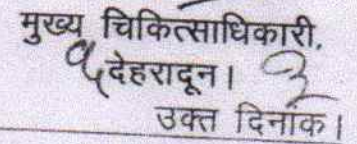 मुख्य चिकित्साधिकारी,
देहरादून।
उक्त दिनांक।